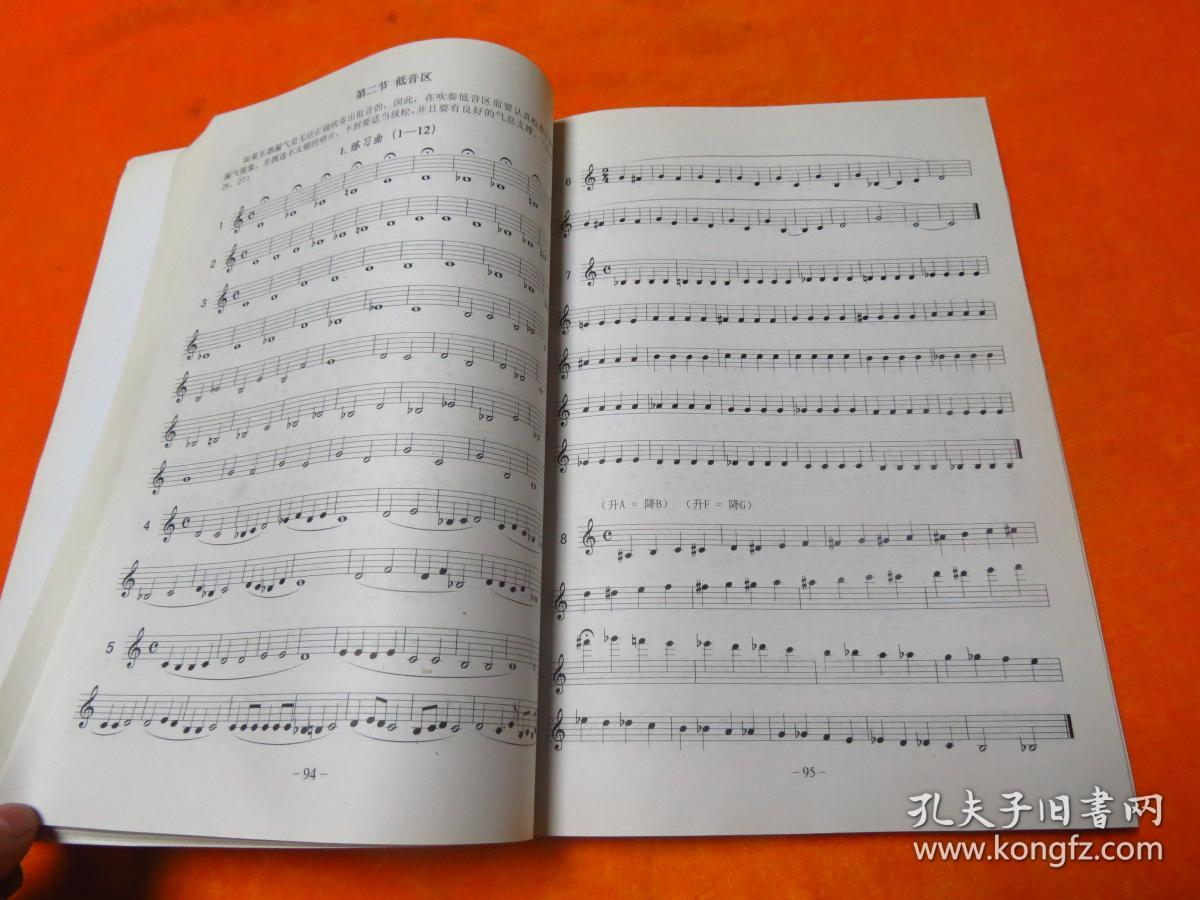 第二节 低音区
如果乐器漏气是无法正确吹奏出低音的，因此，在吹奏低音区前要认真检查
漏气现象，并挑选不太硬的哨片，下唇要适当放松，并且要有良好的气息支撑。
26、27）
1. 练习曲 （1—12）
1
2
3
4
5
－94－
6
7
（升A = 降B） （升F = 降G）
8
－95－
孔夫子旧书网
www.kongfz.com